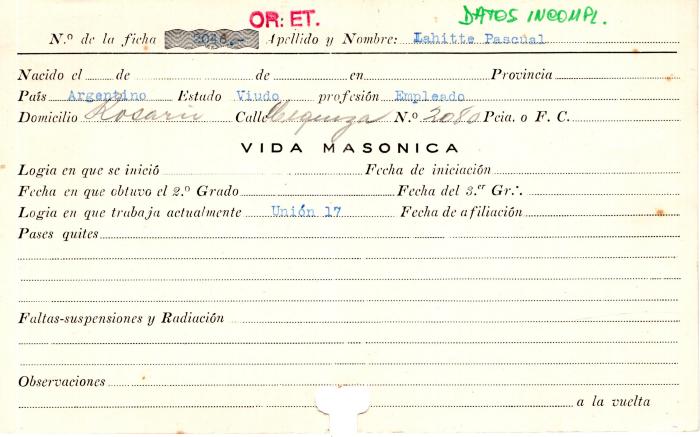 OR: ET. DATOS INCOMPL.
N.º de la ficha 2046.- Apellido y Nombre: Lahitte Pascual
Nacido el de de en Provincia
País Argentino Estado Viudo profesión Empleado
Domicilio Rosario Calle N.º 2080 Pcia. o F. C.
VIDA MASONICA
Logia en que se inició Fecha de iniciación
Fecha en que obtuvo el 2.º Grado Fecha del 3.er Gr∴
Logia en que trabaja actualmente Unión 17 Fecha de afiliación
Pases quites
Faltas-suspensiones y Radiación
Observaciones
a la vuelta